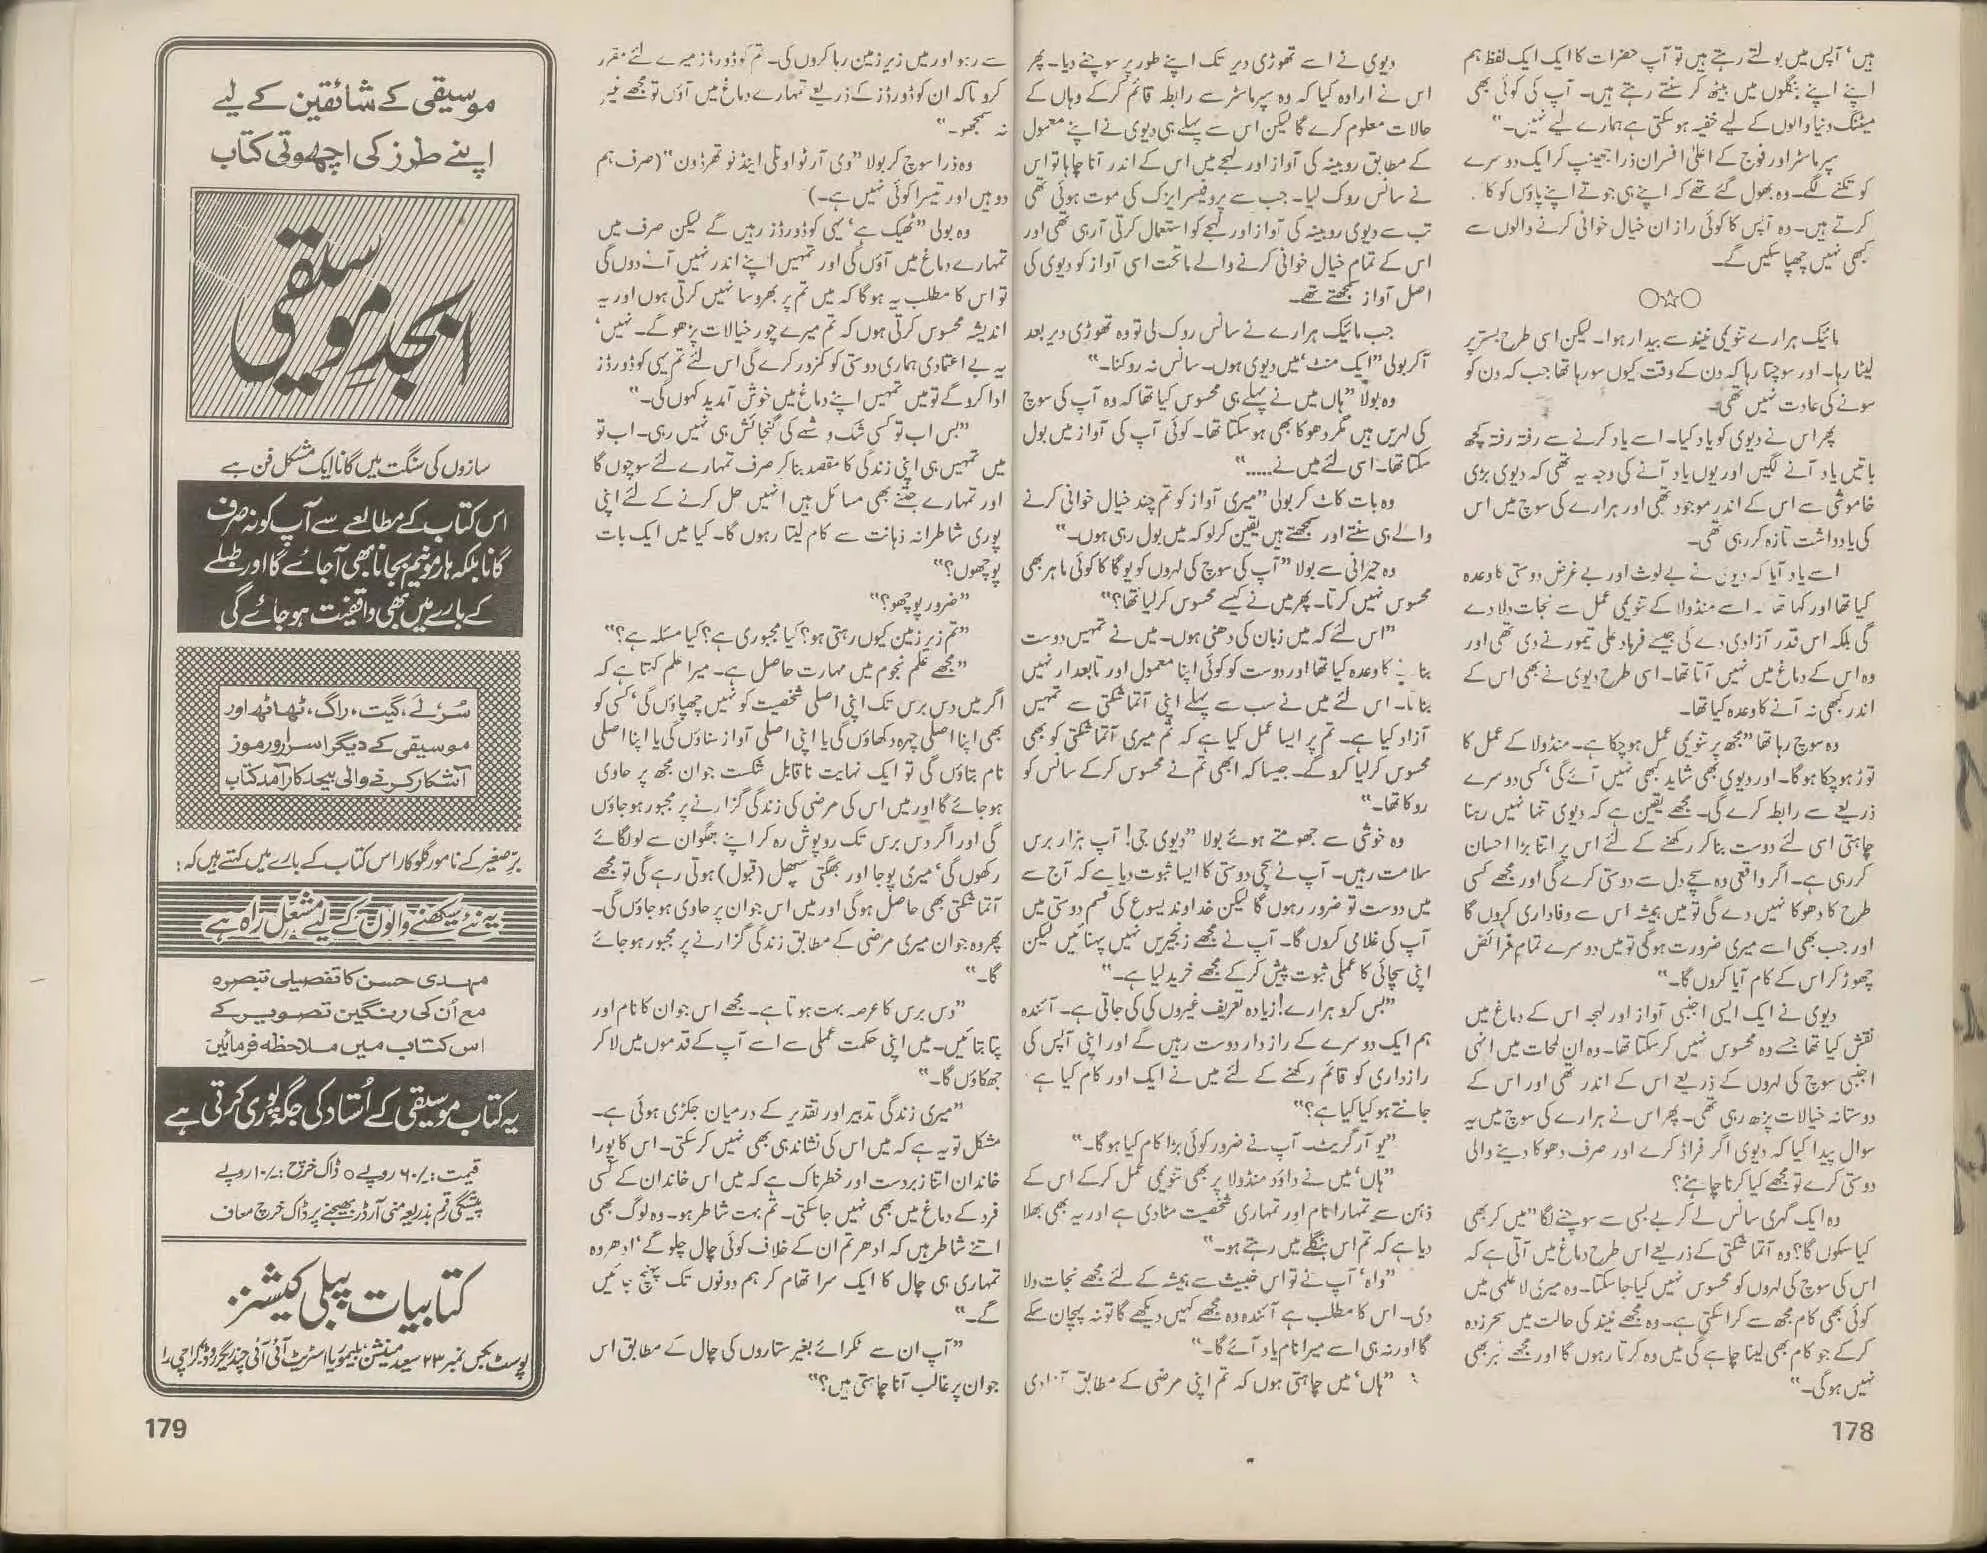 ہیں‘ آپس میں بولتے رہتے ہیں تو آپ حضرات کا ایک ایک لفظ ہم
اپنے اپنے بنگلوں میں بیٹھ کر سنتے رہتے ہیں۔ آپ کی کوئی بھی
میٹنگ دنیا والوں کے لیے خفیہ ہو سکتی ہے ہمارے لیے نہیں۔"
سپر ماسٹر اور فوج کے اعلیٰ افسران ذرا جھینپ کر ایک دوسرے
کو تکنے لگے۔ وہ بھول گئے تھے کہ اپنے ہی جوتے اپنے پاؤں کو کا
کرتے ہیں۔ وہ آپس کا کوئی راز ان خیال خوانی کرنے والوں سے
کبھی نہیں چھپا سکیں گے۔
○☆○
مائیک ہرارے تنویمی نیند سے بیدار ہوا۔ لیکن اسی طرح بستر پر
لیٹا رہا۔ اور سوچتا رہا کہ دن کے وقت کیوں سو رہا تھا جب کہ دن کو
سونے کی عادت نہیں تھی۔
پھر اس نے دیوی کو یاد کیا۔ اسے یاد کرنے سے رفتہ رفتہ کچھ
باتیں یاد آنے لگیں اور یوں یاد آنے کی وجہ یہ تھی کہ دیوی بڑی
خاموشی سے اس کے اندر موجود تھی اور ہرارے کی سوچ میں اس
کی یادداشت تازہ کر رہی تھی۔
اسے یاد آیا کہ دیوی نے بے لوث اور بے غرض دوستی کا وعدہ
کیا تھا اور کہا تھا۔ اسے منڈولا کے تنویمی عمل سے نجات دلا دے
گی بلکہ اس قدر آزادی دے گی جیسے فرہاد علی تیمور نے دی تھی اور
وہ اس کے دماغ میں نہیں آتا تھا۔ اسی طرح دیوی نے بھی اس کے
اندر کبھی نہ آنے کا وعدہ کیا تھا۔
وہ سوچ رہا تھا "مجھ پر تنویمی عمل ہو چکا ہے۔ منڈولا کے عمل کا
توڑ ہو چکا ہوگا۔ اور دیوی بھی شاید کبھی نہیں آئے گی‘ کسی دوسرے
ذریعے سے رابطہ کرے گی۔ مجھے یقین ہے کہ دیوی تنہا نہیں رہنا
چاہتی اسی لئے دوست بنا کر رکھنے کے لئے اس پر اتنا بڑا احسان
کر رہی ہے۔ اگر واقعی وہ سچے دل سے دوستی کرے گی اور مجھے کسی
طرح کا دھوکا نہیں دے گی تو میں ہمیشہ اس سے وفاداری کروں گا
اور جب بھی اسے میری ضرورت ہوگی تو میں دوسرے تمام فرائض
چھوڑ کر اس کے کام آیا کروں گا۔"
دیوی نے ایک ایسی اجنبی آواز اور لہجہ اس کے دماغ میں
نقش کیا تھا جسے وہ محسوس نہیں کر سکتا تھا۔ وہ ان لمحات میں انہی
اجنبی سوچ کی لہروں کے ذریعے اس کے اندر تھی اور اس کے
دوستانہ خیالات پڑھ رہی تھی۔ پھر اس نے ہرارے کی سوچ میں یہ
سوال پیدا کیا کہ دیوی اگر فراڈ کرے اور صرف دھوکا دینے والی
دوستی کرے تو مجھے کیا کرنا چاہئے؟
وہ ایک گہری سانس لے کر بے بسی سے سوچنے لگا "میں کر بھی
کیا سکوں گا؟ وہ آتما شکتی کے ذریعے اس طرح دماغ میں آتی ہے کہ
اس کی سوچ کی لہروں کو محسوس نہیں کیا جا سکتا۔ وہ میری لاعلمی میں
کوئی بھی کام مجھ سے کرا سکتی ہے۔ وہ مجھے نیند کی حالت میں سحر زدہ
کر کے جو کام بھی لینا چاہے گی میں وہ کرتا رہوں گا اور مجھے خبر بھی
نہیں ہوگی۔"
178
دیوی نے اسے تھوڑی دیر تک اپنے طور پر سوچنے دیا۔ پھر
اس نے ارادہ کیا کہ وہ سپر ماسٹر سے رابطہ قائم کر کے وہاں کے
حالات معلوم کرے گا لیکن اس سے پہلے ہی دیوی نے اپنے معمول
کے مطابق روبینہ کی آواز اور لہجے میں اس کے اندر آنا چاہا تو اس
نے سانس روک لیا۔ جب سے پروفیسر ایزک کی موت ہوئی تھی
تب سے دیوی روبینہ کی آواز اور لہجے کو استعمال کرتی آ رہی تھی اور
اس کے تمام خیال خوانی کرنے والے ماتحت اسی آواز کو دیوی کی
اصل آواز سمجھتے تھے۔
جب مائیک ہرارے نے سانس روک لی تو وہ تھوڑی دیر بعد
آ کر بولی "ایک منٹ‘ میں دیوی ہوں۔ سانس نہ روکنا۔"
وہ بولا "ہاں میں نے پہلے ہی محسوس کیا تھا کہ وہ آپ کی سوچ
کی لہریں ہیں مگر دھوکا بھی ہو سکتا تھا۔ کوئی آپ کی آواز میں بول
سکتا تھا۔ اسی لئے میں نے....."
وہ بات کاٹ کر بولی "میری آواز کو تم چند خیال خوانی کرنے
والے ہی سنتے اور سمجھتے ہیں یقین کر لو کہ میں بول رہی ہوں۔"
وہ حیرانی سے بولا "آپ کی سوچ کی لہروں کو یوگا کا کوئی ماہر بھی
محسوس نہیں کرتا۔ پھر میں نے کیسے محسوس کر لیا تھا؟"
"اس لئے کہ میں زبان کی دھنی ہوں۔ میں نے تمہیں دوست
بنانے کا وعدہ کیا تھا اور دوست کو کوئی اپنا معمول اور تابعدار نہیں
بناتا۔ اس لئے میں نے سب سے پہلے اپنی آتما شکتی سے تمہیں
آزاد کیا ہے۔ تم پر ایسا عمل کیا ہے کہ تم میری آتما شکتی کو بھی
محسوس کر لیا کرو گے۔ جیسا کہ ابھی تم نے محسوس کر کے سانس کو
روکا تھا۔"
وہ خوشی سے جھومتے ہوئے بولا "دیوی جی! آپ ہزار برس
سلامت رہیں۔ آپ نے سچی دوستی کا ایسا ثبوت دیا ہے کہ آج سے
میں دوست تو ضرور رہوں گا لیکن خداوند یسوع کی قسم دوستی میں
آپ کی غلامی کروں گا۔ آپ نے مجھے زنجیریں نہیں پہنائیں لیکن
اپنی سچائی کا عملی ثبوت پیش کر کے مجھے خرید لیا ہے۔"
"بس کرو ہرارے! زیادہ تعریف غیروں کی کی جاتی ہے۔ آئندہ
ہم ایک دوسرے کے رازدار دوست رہیں گے اور اپنی آپس کی
رازداری کو قائم رکھنے کے لئے میں نے ایک اور کام کیا ہے
جانتے ہو کیا کیا ہے؟"
"یو آر گریٹ۔ آپ نے ضرور کوئی بڑا کام کیا ہوگا۔"
"ہاں‘ میں نے داؤد منڈولا پر بھی تنویمی عمل کر کے اس کے
ذہن سے تمہارا نام اور تمہاری شخصیت مٹا دی ہے اور یہ بھی بھلا
دیا ہے کہ تم اس بنگلے میں رہتے ہو۔"
"واہ‘ آپ نے تو اس خبیث سے ہمیشہ کے لئے مجھے نجات دلا
دی۔ اس کا مطلب ہے آئندہ وہ مجھے کہیں دیکھے گا تو نہ پہچان سکے
گا اور نہ ہی اسے میرا نام یاد آئے گا۔"
"ہاں‘ میں چاہتی ہوں کہ تم اپنی مرضی کے مطابق آزادی
سے رہو اور میں زیر زمین رہا کروں گی۔ تم کوڈورڈز میرے لئے مقرر
کرو تاکہ ان کوڈورڈز کے ذریعے تمہارے دماغ میں آؤں تو مجھے غیر
نہ سمجھو۔"
وہ ذرا سوچ کر بولا "وی آر ٹو اونلی اینڈ نو تھرڈ ون" (صرف ہم
دو ہیں اور تیسرا کوئی نہیں ہے۔)
وہ بولی "ٹھیک ہے‘ یہی کوڈورڈز رہیں گے لیکن صرف میں
تمہارے دماغ میں آؤں گی اور تمہیں اپنے اندر نہیں آنے دوں گی
تو اس کا مطلب یہ ہوگا کہ میں تم پر بھروسا نہیں کرتی ہوں اور یہ
اندیشہ محسوس کرتی ہوں کہ تم میرے چور خیالات پڑھو گے۔ نہیں‘
یہ بے اعتمادی ہماری دوستی کو کمزور کرے گی اس لئے تم یہی کوڈورڈز
ادا کرو گے تو میں تمہیں اپنے دماغ میں خوش آمدید کہوں گی۔"
"بس اب تو کسی شک و شبے کی گنجائش ہی نہیں رہی۔ اب تو
میں تمہیں ہی اپنی زندگی کا مقصد بنا کر صرف تمہارے لئے سوچوں گا
اور تمہارے جتنے بھی مسائل ہیں انہیں حل کرنے کے لئے اپنی
پوری شاطرانہ ذہانت سے کام لیتا رہوں گا۔ کیا میں ایک بات
پوچھوں؟"
"ضرور پوچھو؟"
"تم زیر زمین کیوں رہتی ہو؟ کیا مجبوری ہے؟ کیا مسئلہ ہے؟"
"مجھے علم نجوم میں مہارت حاصل ہے۔ میرا علم کہتا ہے کہ
اگر میں دس برس تک اپنی اصلی شخصیت کو نہیں چھپاؤں گی‘ کسی کو
بھی اپنا اصلی چہرہ دکھاؤں گی یا اپنی اصلی آواز سناؤں گی یا اپنا اصلی
نام بتاؤں گی تو ایک نہایت ناقابل شکست جوان مجھ پر حاوی
ہو جائے گا اور میں اس کی مرضی کی زندگی گزارنے پر مجبور ہو جاؤں
گی اور اگر دس برس تک روپوش رہ کر اپنے بھگوان سے لو لگائے
رکھوں گی‘ میری پوجا اور بھگتی سپھل (قبول) ہوتی رہے گی تو مجھے
آتما شکتی بھی حاصل ہوگی اور میں اس جوان پر حاوی ہو جاؤں گی۔
پھر وہ جوان میری مرضی کے مطابق زندگی گزارنے پر مجبور ہو جائے
گا۔"
"دس برس کا عرصہ بہت ہوتا ہے۔ مجھے اس جوان کا نام اور
پتا بتائیں۔ میں اپنی حکمت عملی سے اسے آپ کے قدموں میں لا کر
جھکاؤں گا۔"
"میری زندگی تدبیر اور تقدیر کے درمیان جکڑی ہوئی ہے۔
مشکل تو یہ ہے کہ میں اس کی نشاندہی بھی نہیں کر سکتی۔ اس کا پورا
خاندان اتنا زبردست اور خطرناک ہے کہ میں اس خاندان کے کسی
فرد کے دماغ میں بھی نہیں جا سکتی۔ تم بہت شاطر ہو۔ وہ لوگ بھی
اتنے شاطر ہیں کہ ادھر تم ان کے خلاف کوئی چال چلو گے‘ ادھر وہ
تمہاری ہی چال کا ایک سرا تھام کر ہم دونوں تک پہنچ جائیں
گے۔"
"آپ ان سے ٹکرائے بغیر ستاروں کی چال کے مطابق اس
جوان پر غالب آنا چاہتی ہیں؟"
موسیقی کے شائقین کے لیے
اپنے طرز کی اچھوتی کتاب
ابجدِ موسیقی
سازوں کی سنگت میں گانا ایک مشکل فن ہے
اس کتاب کے مطالعے سے آپ کو نہ صرف
گانا بلکہ ہارمونیم بجانا بھی آجائے گا اور طبلے
کے بارے میں بھی واقفیت ہو جائے گی
سُر، لے، گیت، راگ، ٹھاٹھ اور
موسیقی کے دیگر اسرار و رموز
آشکار کرنے والی بیحد کارآمد کتاب
برّصغیر کے نامور گلوکار اس کتاب کے بارے میں کہتے ہیں کہ:
یہ نئے سیکھنے والوں کے لیے مشعلِ راہ ہے
مہدی حسن کا تفصیلی تبصرہ
مع اُن کی رنگین تصویر کے
اس کتاب میں ملاحظہ فرمائیں
یہ کتاب موسیقی کے اُستاد کی جگہ پوری کرتی ہے
قیمت: -/۶۰ روپے ○ ڈاک خرچ: -/۱۰ روپے
پیشگی رقم بذریعہ منی آرڈر بھیجنے پر ڈاک خرچ معاف
کتابیات پبلی کیشنز
پوسٹ بکس نمبر ۲۳ سعید مینشن بلیموریا اسٹریٹ آئی آئی چندریگر روڈ کراچی ۱
179